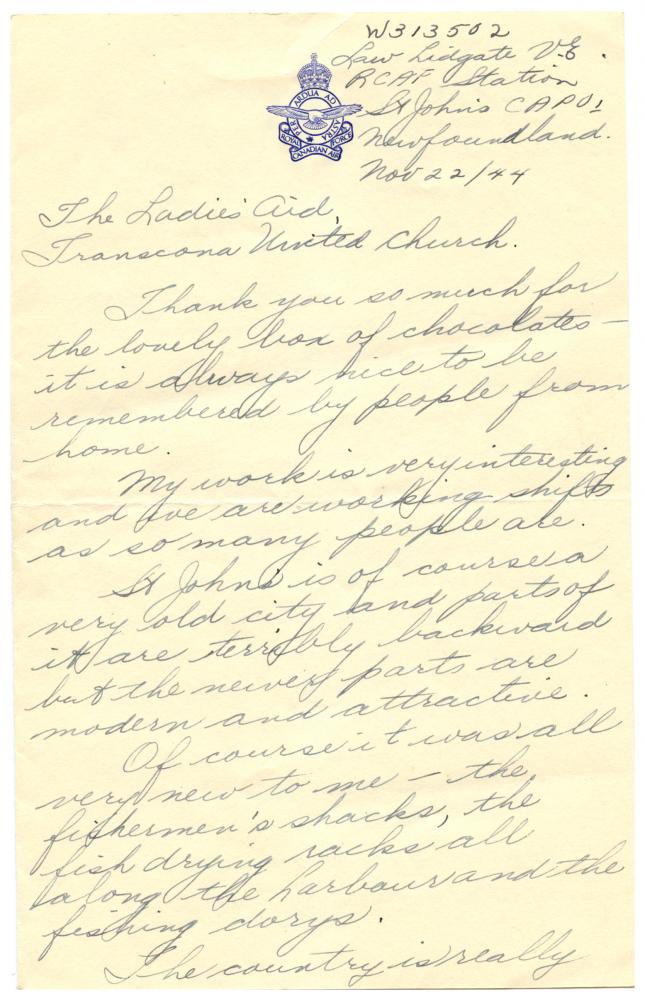 W313502
Law Lidgate V.E.
RCAF Station
St Johns CAPO 1
Newfoundland.
Nov 22/44
PER ARDUA AD ASTRA
ROYAL CANADIAN AIR FORCE
The Ladies Aid,
Transcona United Church.
Thank you so much for
the lovely box of chocolates –
it is always nice to be
remembered by people from
home.
My work is very interesting
and we are working shifts
as so many people are.
St Johns is of course a
very old city and parts of
it are terribly backward
but the newer parts are
modern and attractive.
Of course it was all
very new to me – the
fishermen's shacks, the
fish drying racks all
along the harbour and the
fishing dorys.
The country is really